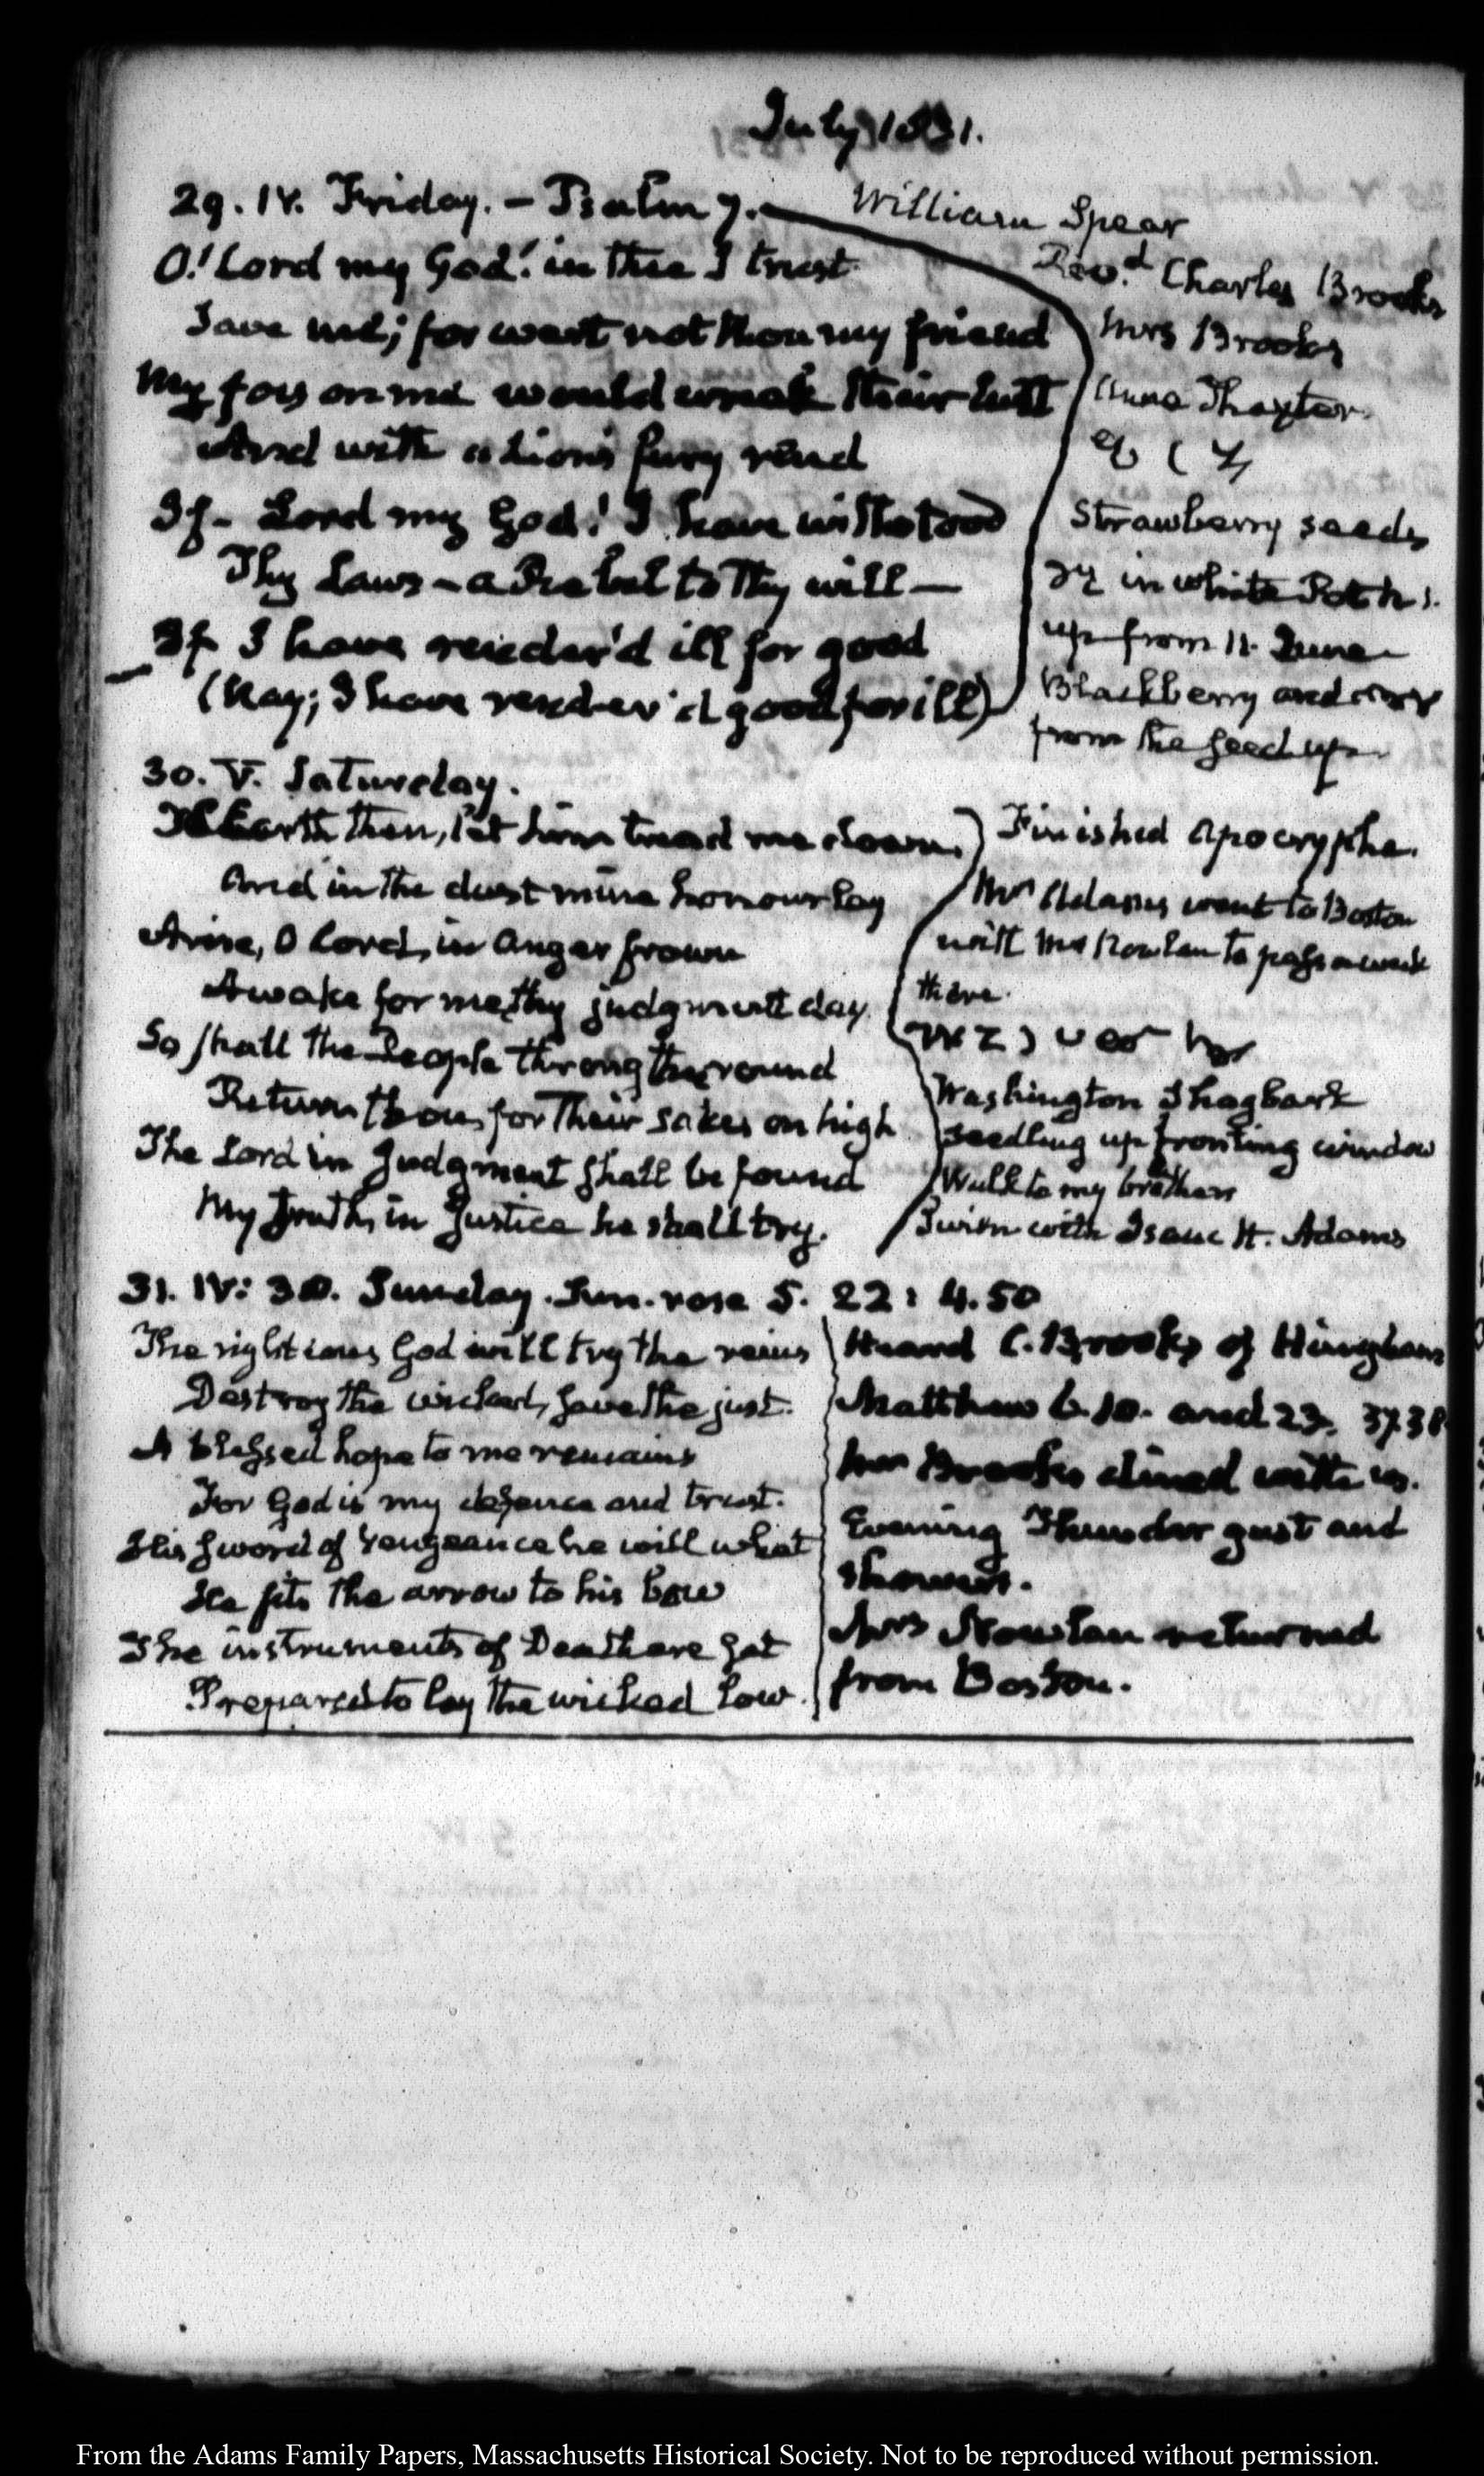 July 1831.
29. IV. Friday. — Psalm 7.
O! Lord my God! in thee I trust
Save me; for wert not thou my friend
My foes on me would wreak their lust
And with a Lion's fury rend
If - Lord my God! I have withstood
Thy Laws — a Rebel to Thy will —
If I have render'd ill for good
(Nay; I have render'd good for ill)
William Spear
Revd. Charles Brooks
Mrs Brooks
Anna Thaxter
Strawberry seeds
in white Pot No 1.
up from 11. June
Blackberry and
from the seed up
30. V. Saturday.
To Earth then, let him tread me down.
And in the dust mine honour lay
Arise, O Lord, in anger frown
Awake for me, thy judgment day.
So shall the People throng thee round
Return thou, for their sakes on high
The Lord in Judgment shall be found
My Truth, in Justice he shall try.
Finished Apocrypha.
Mrs Adams went to Boston
with Mrs Nowlan to pass a week
there.
Washington Shagbark
seedling up fronting window
Walk to my brothers
Swim with Isaac H. Adams
31. IV: 30. Sunday. Sun. rose 5. 22: 4.50
The righteous God will try the reins
Destroy the wicked, save the just.
A blessed hope to me remains
For God is my defence and trust.
His sword of Vengeance he will whet
He fits the arrow to his bow
The instruments of Death are set
Prepared to lay the wicked low.
Heard C. Brooks of Hingham
Matthew 6.10. and 23. 37.38
Mr Brooks dined with us.
Evening Thunder gust and
shower.
Mrs Nowlan returned
from Boston.
From the Adams Family Papers, Massachusetts Historical Society. Not to be reproduced without permission.